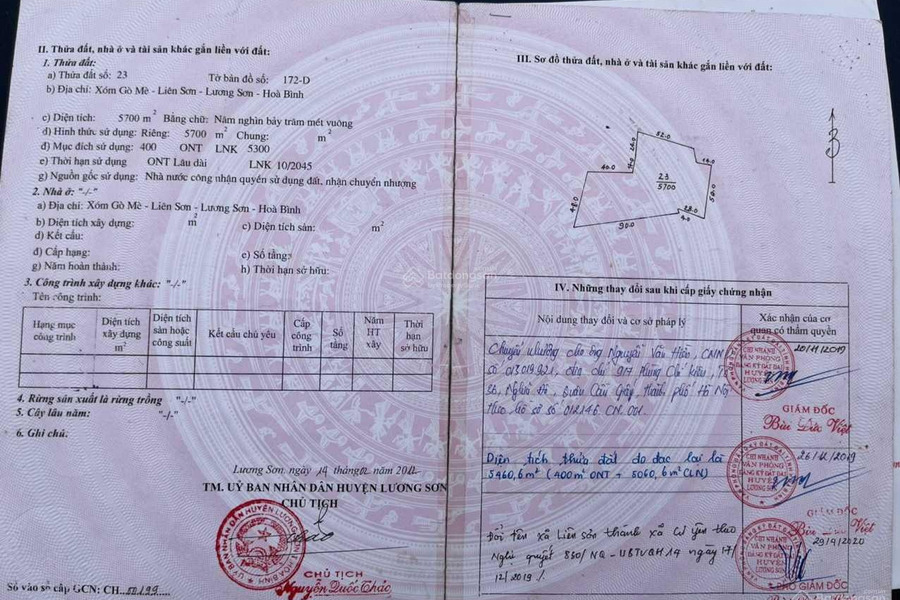 II. Thửa đất, nhà ở và tài sản khác gắn liền với đất:
1. Thửa đất:
a) Thửa đất số: 23 Tờ bản đồ số: 172-D
b) Địa chỉ: Xóm Gò Mè - Liên Sơn - Lương Sơn - Hoà Bình
c) Diện tích: 5700 m² Bằng chữ: Năm nghìn bảy trăm mét vuông
d) Hình thức sử dụng: Riêng: 5700 m² Chung: m²
đ) Mục đích sử dụng: 400 ONT LNK 5300
e) Thời hạn sử dụng ONT Lâu dài LNK 10/2045
g) Nguồn gốc sử dụng: Nhà nước công nhận quyền sử dụng đất, nhận chuyển nhượng
2. Nhà ở: "-/-"
a) Địa chỉ: Xóm Gò Mè - Liên Sơn - Lương Sơn - Hoà Bình
b) Diện tích xây dựng: m² c) Diện tích sàn: m²
d) Kết cấu:
đ) Cấp hạng: e) Số tầng:
g) Năm hoàn thành: h) Thời hạn sở hữu:
3. Công trình xây dựng khác: "-/-"
Tên công trình:
Hạng mục công trình
Diện tích xây dựng m²
Diện tích sàn hoặc công suất
Kết cấu chủ yếu
Cấp công trình
Số tầng
Năm HT xây
Thời hạn sở hữu
4. Rừng sản xuất là rừng trồng "-/-"
5. Cây lâu năm: "-/-"
6. Ghi chú:
Lương Sơn, ngày 14 tháng năm
TM. UỶ BAN NHÂN DÂN HUYỆN LƯƠNG SƠN
CHỦ TỊCH
CHỦ TỊCH
Nguyễn Quốc Thảo
Số vào sổ cấp GCN: CH
III. Sơ đồ thửa đất, nhà ở và tài sản khác gắn liền với đất:
52.0
40.0
23
5700
48.0
90.0
IV. Những thay đổi sau khi cấp giấy chứng nhận
Nội dung thay đổi và cơ sở pháp lý
Xác nhận của cơ quan có thẩm quyền
Chuyển nhượng cho ông Nguyễn Văn CMN
số 013019921, địa chỉ
Nghĩa Đô, quận Cầu Giấy, thành phố Hà Nội
theo hồ sơ số 012146.CN.001.
20/11/2019
CHI NHÁNH
VĂN PHÒNG
ĐĂNG KÝ ĐẤT ĐAI
HUYỆN
LƯƠNG SƠN
GIÁM ĐỐC
Bùi Đức Việt
Diện tích thửa đất đo đạc lại là
5460,6m² (400m² ONT + 5060,6m² CLN)
26/11/2019
CHI NHÁNH
VĂN PHÒNG
ĐĂNG KÝ ĐẤT ĐAI
HUYỆN
LƯƠNG SƠN
GIÁM ĐỐC
Bùi Đức Việt
Đổi tên xã Liên Sơn thành xã Cư Yên theo
Nghị quyết 850/NQ-UBTVQH14 ngày 17/
12/2019 /.
29/4/2020
CHI NHÁNH
VĂN PHÒNG
ĐĂNG KÝ ĐẤT ĐAI
HUYỆN
LƯƠNG SƠN
PHÓ GIÁM ĐỐC
Batdongsan